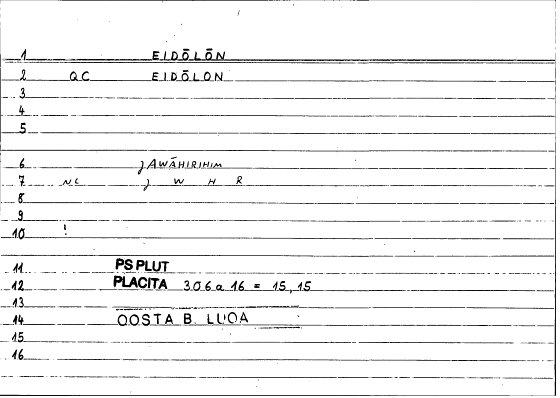 1 EIDŌLŌN
2 QC EIDŌLON
3
4
5
6 ǧAWĀHIRIHIM
7 NC ǧ W H R
8
9
10 !
11 PS PLUT
12 PLACITA 306a 16 = 15,15
13
14 QOSTA B. LUQA
15
16